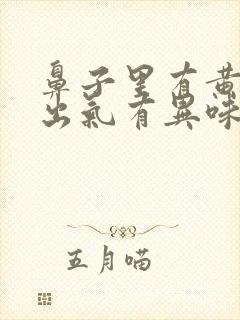 鼻子里有黄
出氣有異味
五月喵